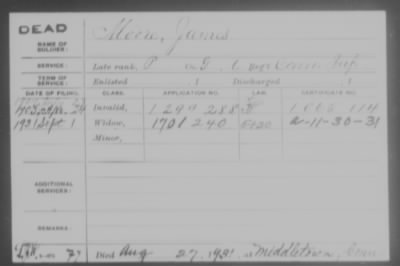 DEAD
NAME OF SOLDIER: Moore, James
SERVICE: Late rank, P Co. G, 6 Reg't Conn Inf
TERM OF SERVICE: Enlisted , 1 Discharged , 1
DATE OF FILING. CLASS. APPLICATION NO. LAW. CERTIFICATE NO.
Invalid, 1290 288
1931 Sept 1 Widow, 1701 240 A-11-30-31
Minor,
ADDITIONAL SERVICES:
REMARKS:
Died Aug 27, 1931, at Middletown, Conn